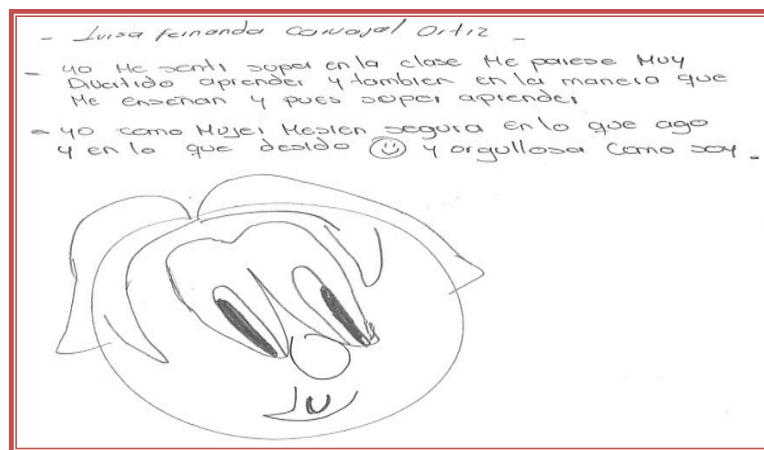 - Luisa Fernanda Carvajal Ortiz -
- yo Me senti super en la clase Me parese Muy
Divertido aprender y tambien en la manera que
Me enseñan y pues super aprender
- yo como Mujer Mesien segura en lo que ago
y en lo que desido y orgullosa como soy.